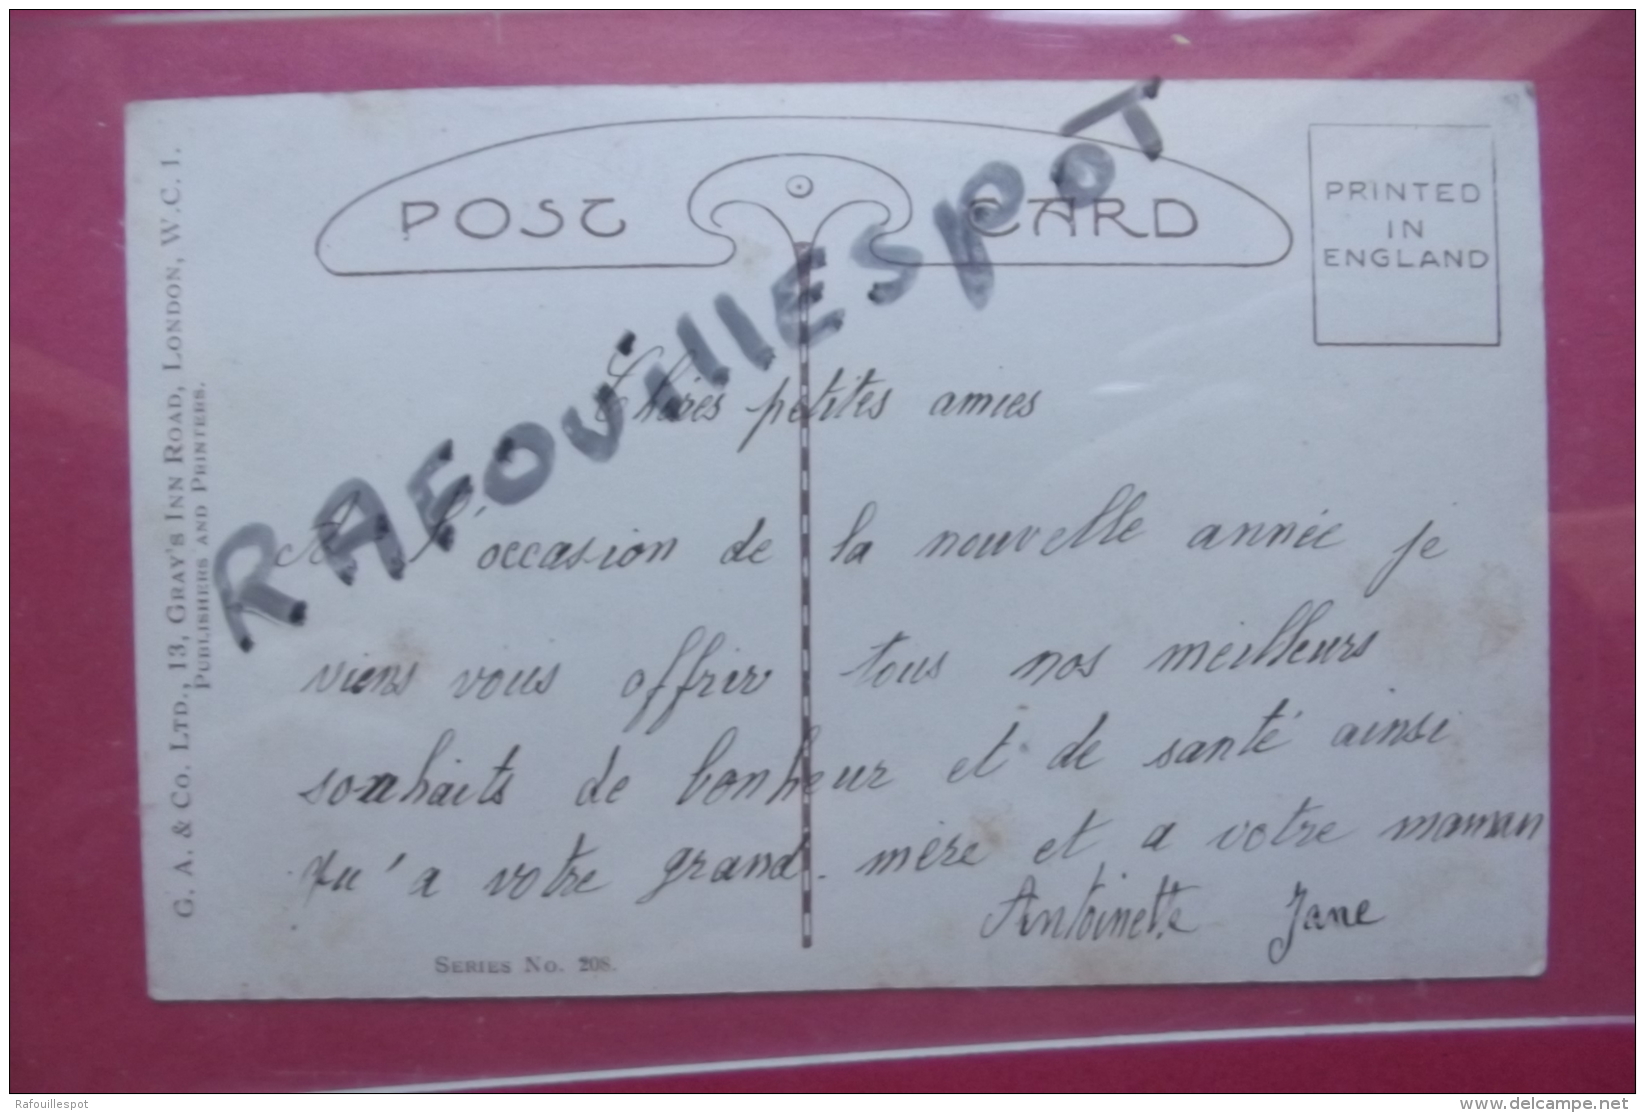 POST CARD
PRINTED
IN
ENGLAND
G. A. & Co. LTD., 13, GRAY'S INN ROAD, LONDON, W.C. 1.
PUBLISHERS AND PRINTERS.
RAFOUILLESPOT
Chères petites amies
A l'occasion de la nouvelle année je
viens vous offrir tous nos meilleurs
souhaits de bonheur et de santé ainsi
qu'a votre grand-mère et a votre maman
Antoinette Jane
SERIES No. 208.
Rafouillespot
delcampe.net